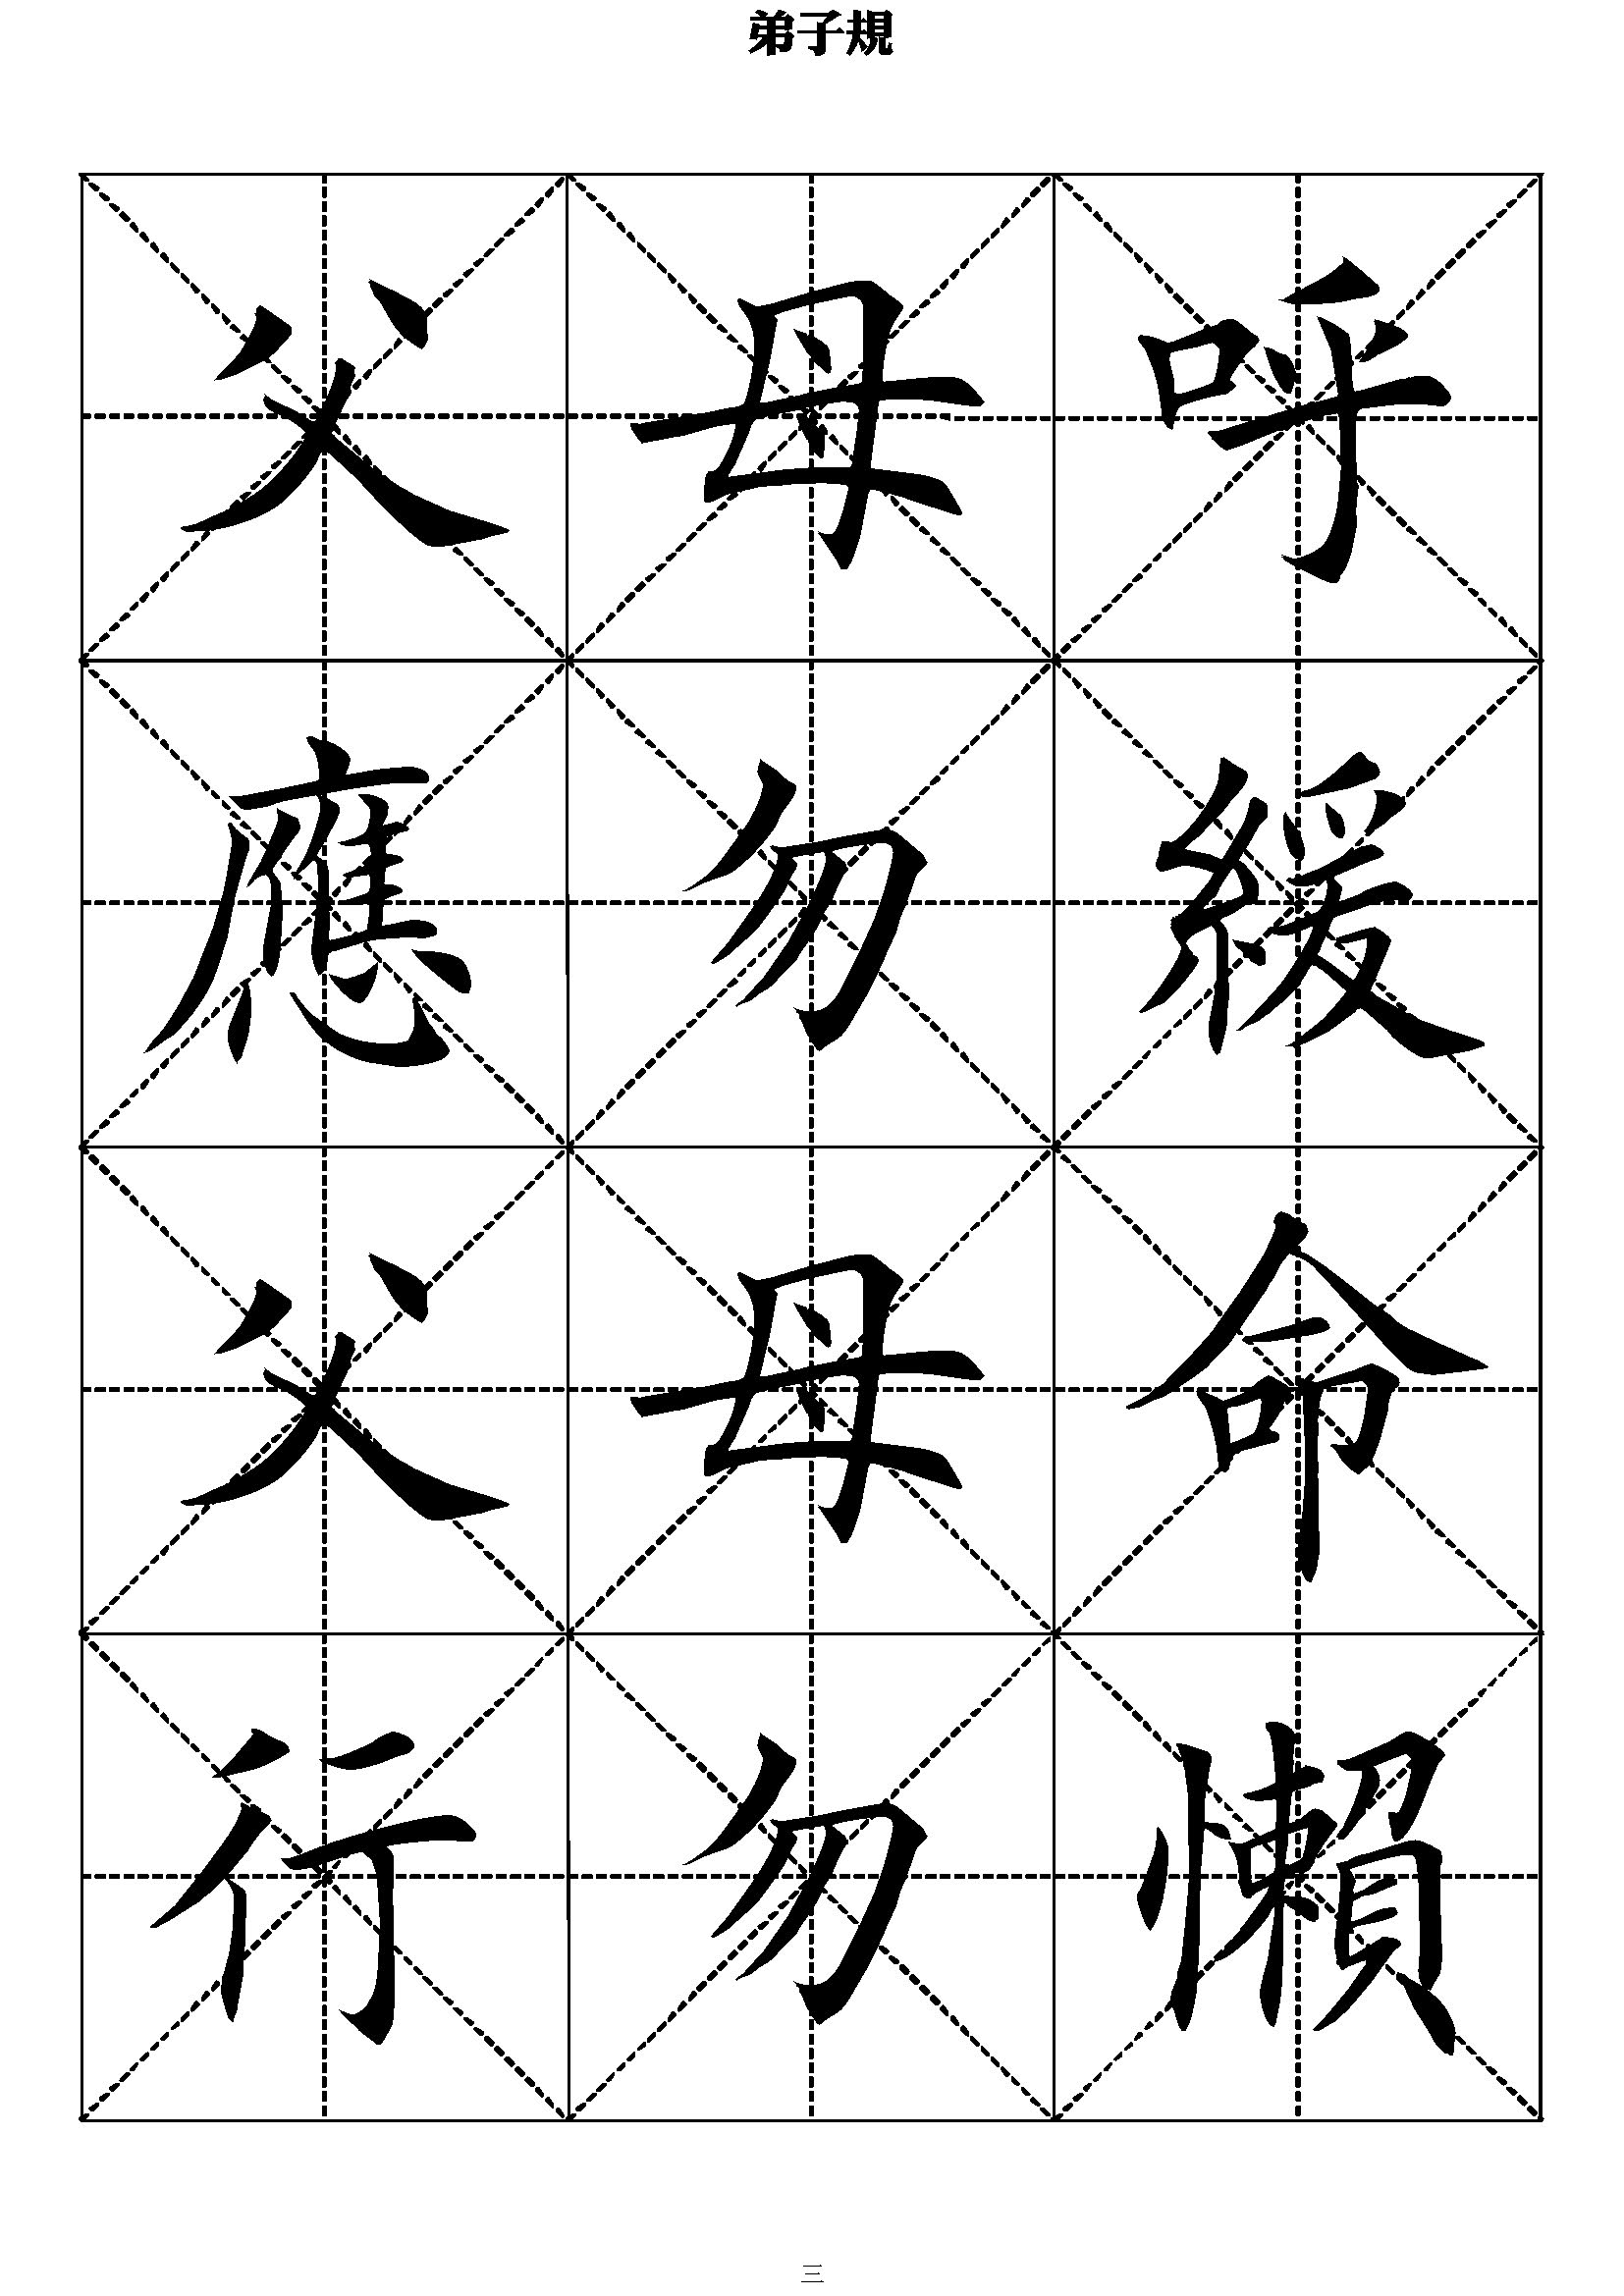 弟子規
父母呼
應勿緩
父母命
行勿懶
三